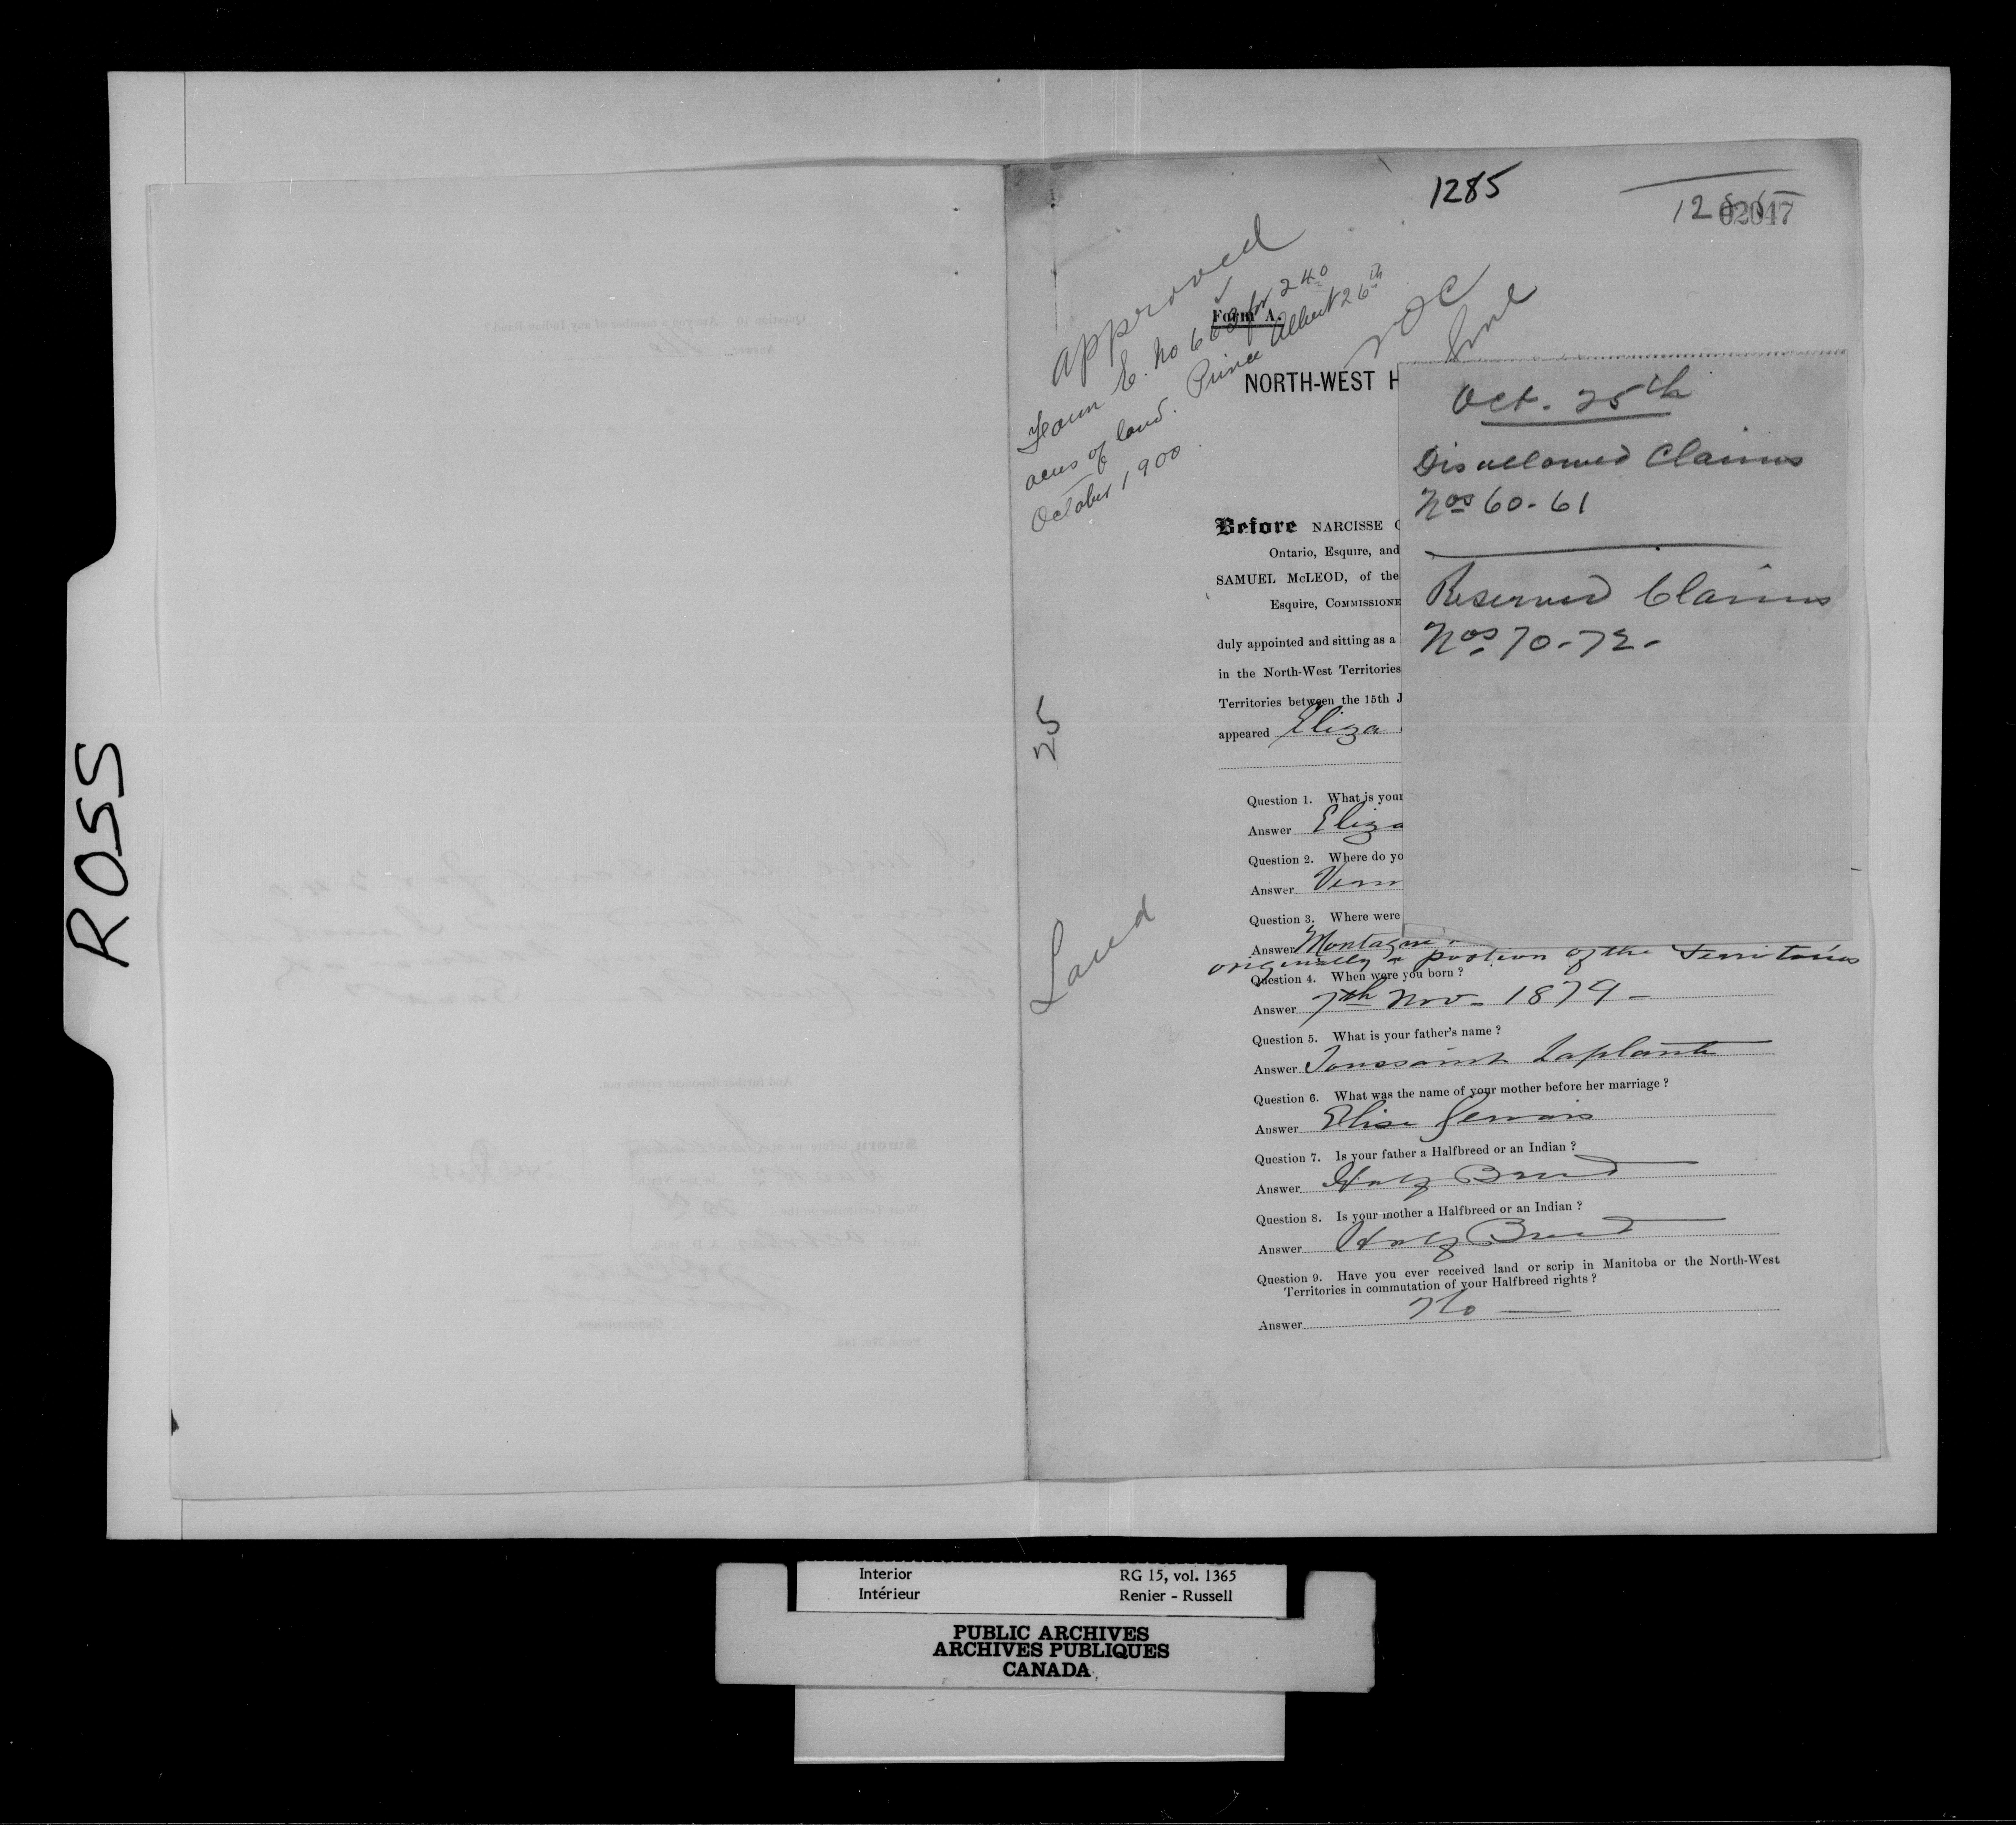 ROSS
1285
02047
approved
Form E. No 66 for 240
acres of land. Prince Albert 26th
October 1900.
Form A.
NORTH-WEST H
NOC
Oct. 25th
Disallowed Claims
Nos 60-61
Reserved Claims
Nos 70-72-
Before NARCISSE
Ontario, Esquire, and
SAMUEL McLEOD, of the
Esquire, COMMISSIONE
duly appointed and sitting as a
in the North-West Territories
Territories between the 15th J
appeared Eliza
25
Land
Question 1. What is your
Answer Eliza
Question 2. Where do yo
Answer Verm
Question 3. Where were
Answer Montagne
originally a portion of the Territories
Question 4. When were you born ?
Answer 7th Nov- 1879 -
Question 5. What is your father's name ?
Answer Toussaint Laplante
Question 6. What was the name of your mother before her marriage ?
Answer Elise Gervais
Question 7. Is your father a Halfbreed or an Indian ?
Answer Half Breed
Question 8. Is your mother a Halfbreed or an Indian ?
Answer Half Breed
Question 9. Have you ever received land or scrip in Manitoba or the North-West
Territories in commutation of your Halfbreed rights ?
Answer No —
Interior RG 15, vol. 1365
Intérieur Renier - Russell
PUBLIC ARCHIVES
ARCHIVES PUBLIQUES
CANADA